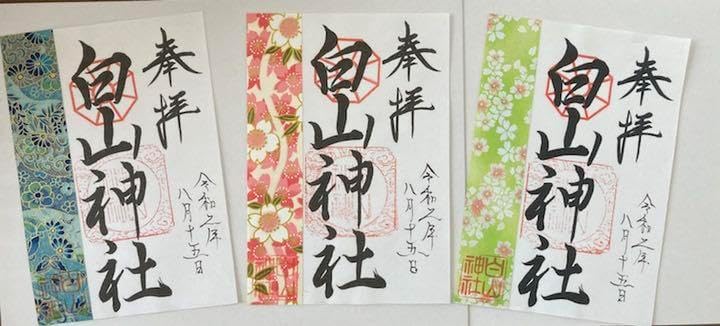 奉拝
白山神社
令和元年
八月十五日
奉拝
白山神社
令和元年
八月十五日
奉拝
白山神社
令和元年
八月十五日
白山
神社